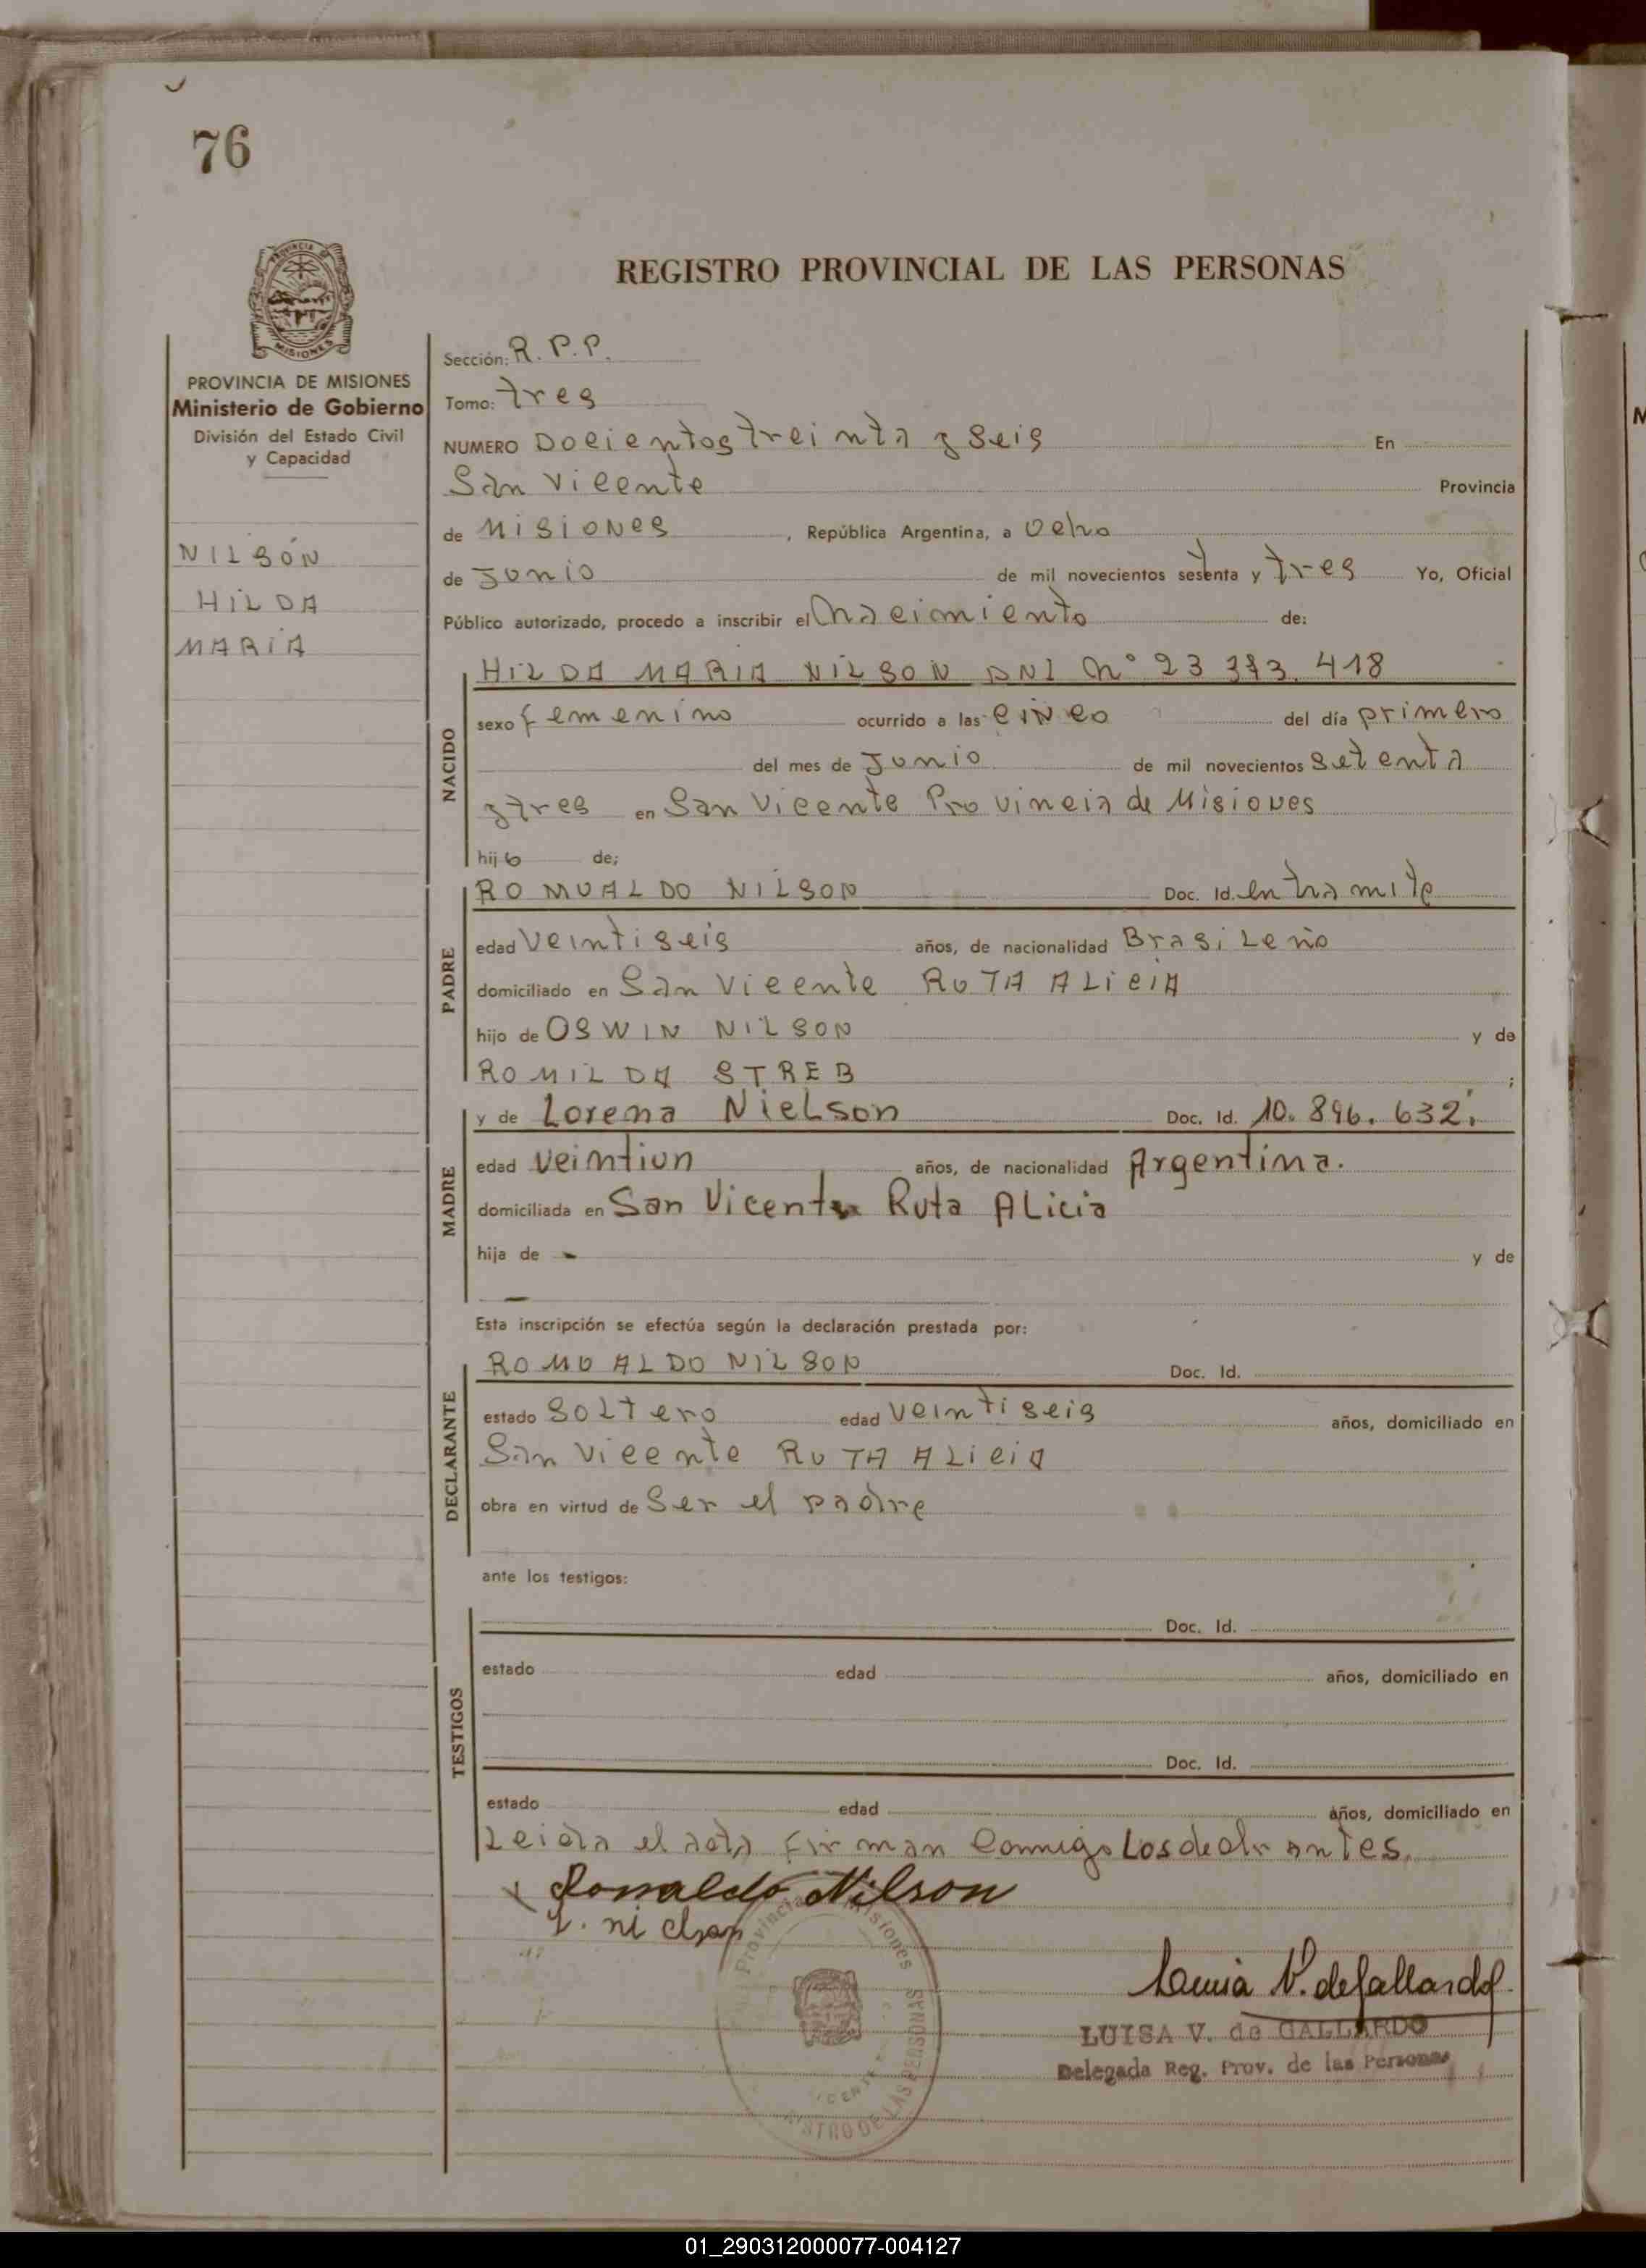 76
PROVINCIA DE
MISIONES
REGISTRO PROVINCIAL DE LAS PERSONAS
PROVINCIA DE MISIONES
Ministerio de Gobierno
División del Estado Civil
y Capacidad
NILSON
HILDA
MARIA
Sección: R. P. P.
Tomo: tres
NUMERO Docientos treinta y seis En
San Vicente Provincia
de Misiones, República Argentina, a ocho
de Junio de mil novecientos setenta y tres Yo, Oficial
Público autorizado, procedo a inscribir el nacimiento de:
NACIDO
HILDA MARIA NILSON DNI Nº 23 418
sexo femenino ocurrido a las cinco del día primero
del mes de Junio de mil novecientos setenta
y tres en San Vicente Provincia de Misiones
hijo de;
PADRE
ROMUALDO NILSON Doc. Id. en tramite
edad Veintiseis años, de nacionalidad Brasileño
domiciliado en San Vicente RUTA ALICIA
hijo de OSWIN NILSON y de
ROMILDA STREB ;
MADRE
y de Lorena Nielson Doc. Id. 10. 896. 632.
edad veintiun años, de nacionalidad Argentina.
domiciliada en San Vicente Ruta Alicia
hija de - y de
-
Esta inscripción se efectúa según la declaración prestada por:
DECLARANTE
ROMUALDO NILSON Doc. Id.
estado Soltero edad veintiseis años, domiciliado en
San Vicente RUTA ALICIA
obra en virtud de Ser el padre
ante los testigos:
TESTIGOS
Doc. Id.
estado edad años, domiciliado en
Doc. Id.
estado edad años, domiciliado en
Leida el acta firman conmigo Los
Nilson
Provincia Misiones
Luisa V. de Gallardo
LUISA V. de GALLARDO
Delegada Reg. Prov. de las Personas
DE LAS PERSONAS
01_290312000077-004127